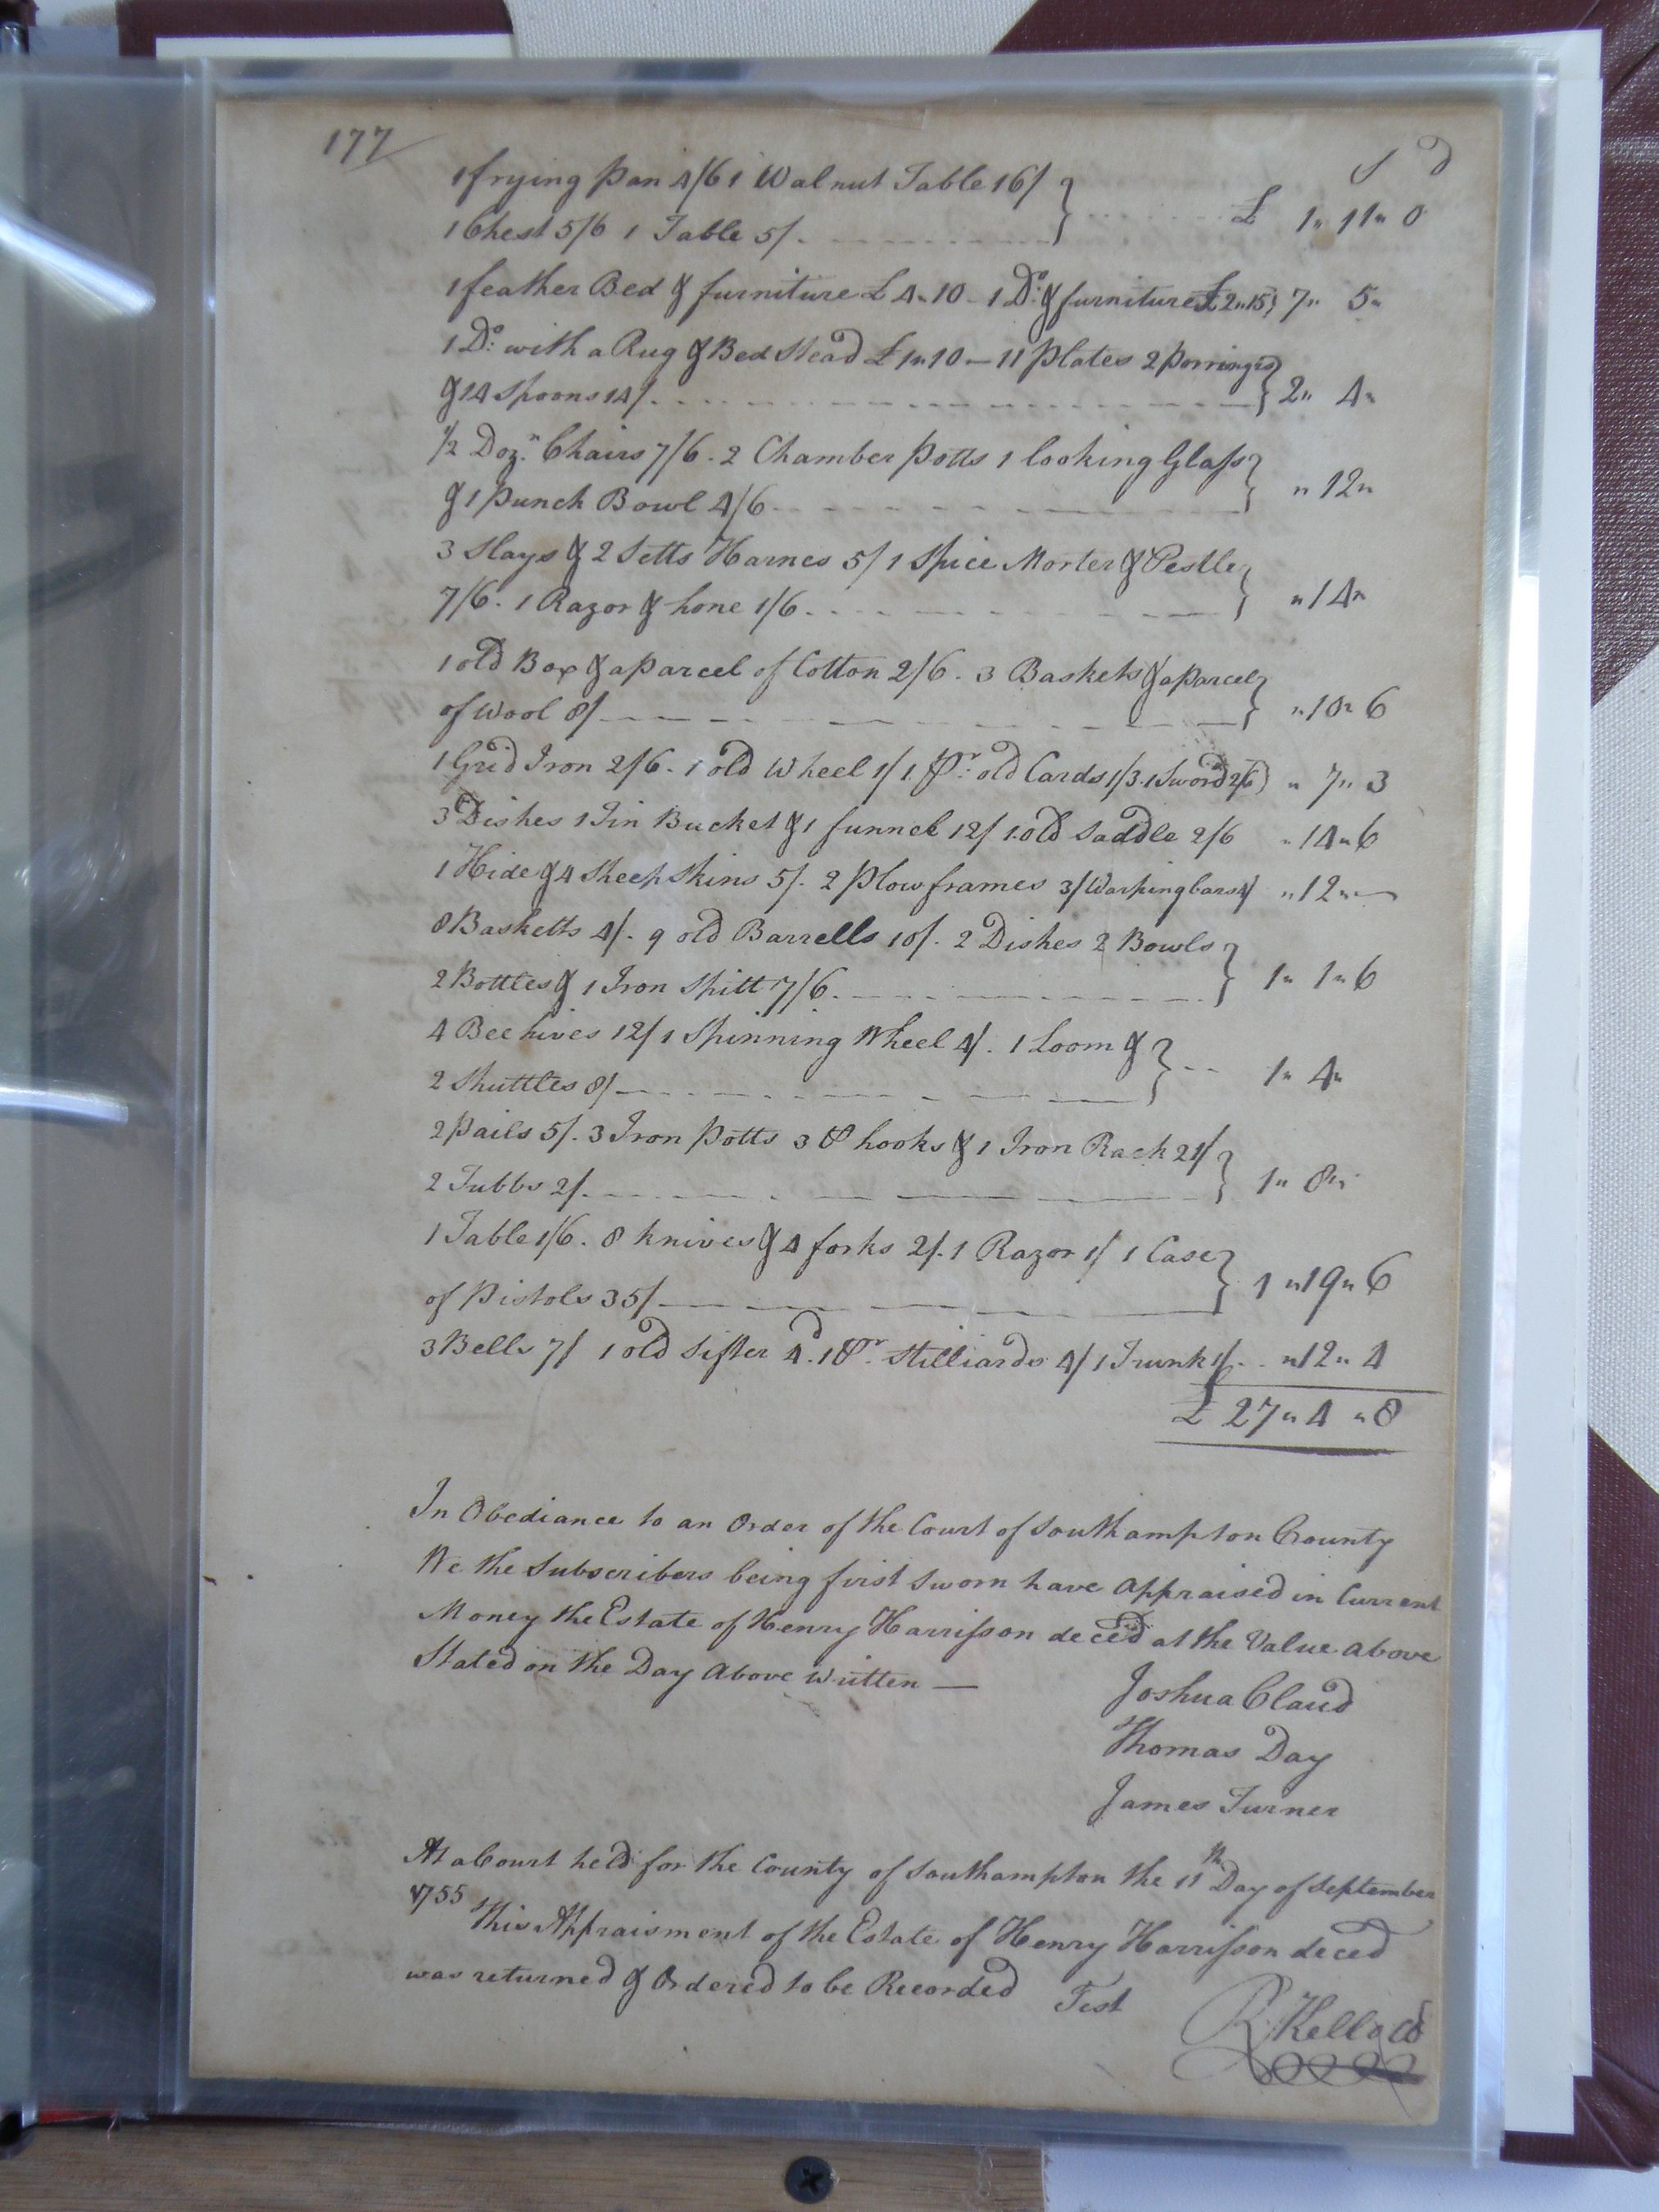 177
S D
1 frying pan 4/6 1 Walnut Table 16/
1 Chest 5/6 1 Table 5/. £ 1" 11" 0
1 feather Bed & furniture £ 4"10 - 1 Do: & furniture £2"15 7" 5"
1 Do: with a Rug & Bed Stead £ 1"10 — 11 plates 2 porringrs
& 14 Spoons 14/. 2" 4"
1/2 Dozn. Chairs 7/6. 2 Chamber potts 1 looking Glass
& 1 Punch Bowl 4/6 " 12"
3 Slays & 2 Setts Harnes 5/ 1 Spice Morter & Pestle
7/6. 1 Razor & hone 1/6 " 14"
1 old Box & a parcel of Cotton 2/6. 3 Baskets & a parcel
of wool 8/ " 10" 6
1 Grid Iron 2/6. 1 old Wheel 1/ 1 Pr: old Cards 1/3. 1 Sword 2/6 " 7" 3
3 Dishes 1 Tin Bucket & 1 funnel 12/ 1 old Saddle 2/6 " 14" 6
1 Hide & 4 Sheep Skins 5/. 2 plow frames 3/ Warping bars 4/ " 12" —
8 Basketts 4/. 9 old Barrells 10/. 2 Dishes 2 Bowls
2 Bottles & 1 Iron Spitt 7/6. 1" 1" 6
4 Bee hives 12/ 1 Spinning Wheel 4/. 1 Loom &
2 Shuttles 8/ 1" 4"
2 pails 5/. 3 Iron potts 3 P hooks & 1 Iron Rack 21/
2 Tubbs 2/. 1" 8"
1 Table 1/6. 8 knives & 4 forks 2/. 1 Razor 1/ 1 Case
of Pistols 35/ 1 "19" 6
3 Bells 7/ 1 old Sifter 4d. 1 Pr. Stilliards 4/ 1 Trunk 1/. "12" 4
£ 27" 4 "8
In Obediance to an Order of the Court of Southampton County
We the Subscribers being first Sworn have appraised in Current
Money the Estate of Henry Harrisson deced at the Value above
Stated on the Day above written —
Joshua Claud
Thomas Day
James Turner
At a Court held for the County of Southampton the 11th Day of September
1755
This Appraisment of the Estate of Henry Harrisson deced
was returned & Ordered to be Recorded
Test
R. Kello